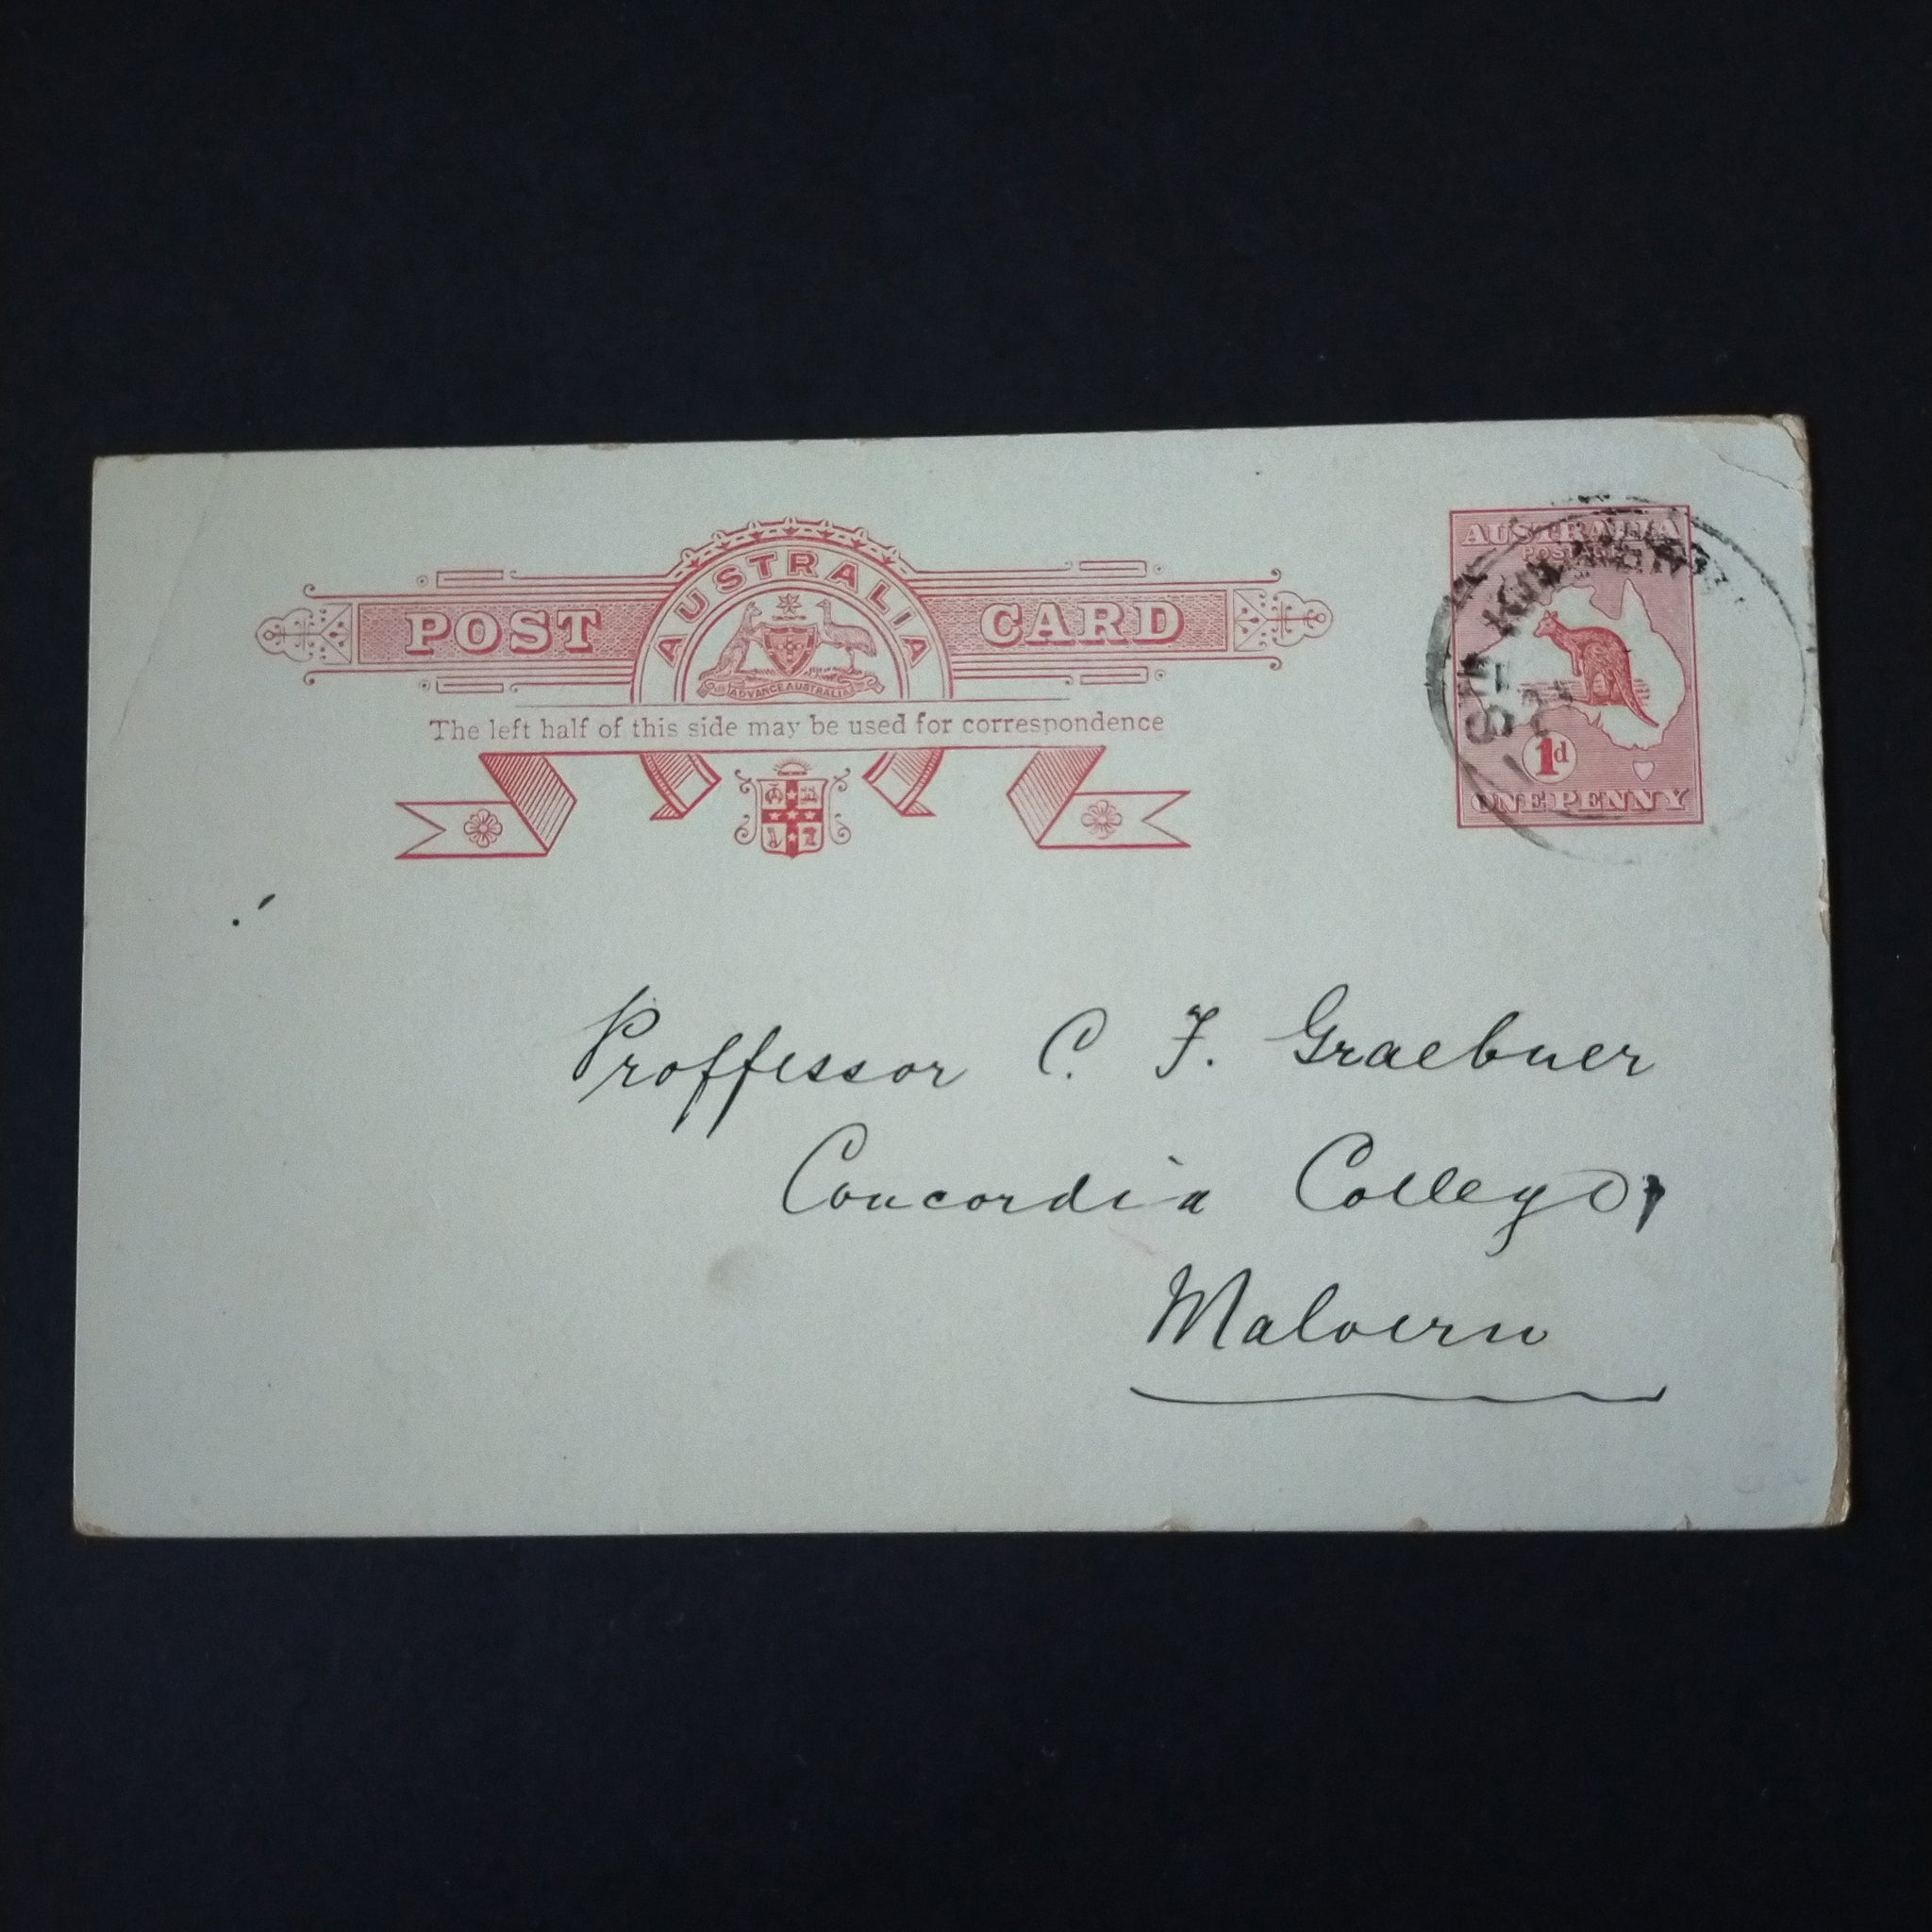 AUSTRALIA
POST CARD
ADVANCE AUSTRALIA
The left half of this side may be used for correspondence
AUSTRALIA
POSTAGE
1d
ONE PENNY
Proffessor C. F. Graebner
Concordia College,
Malvern